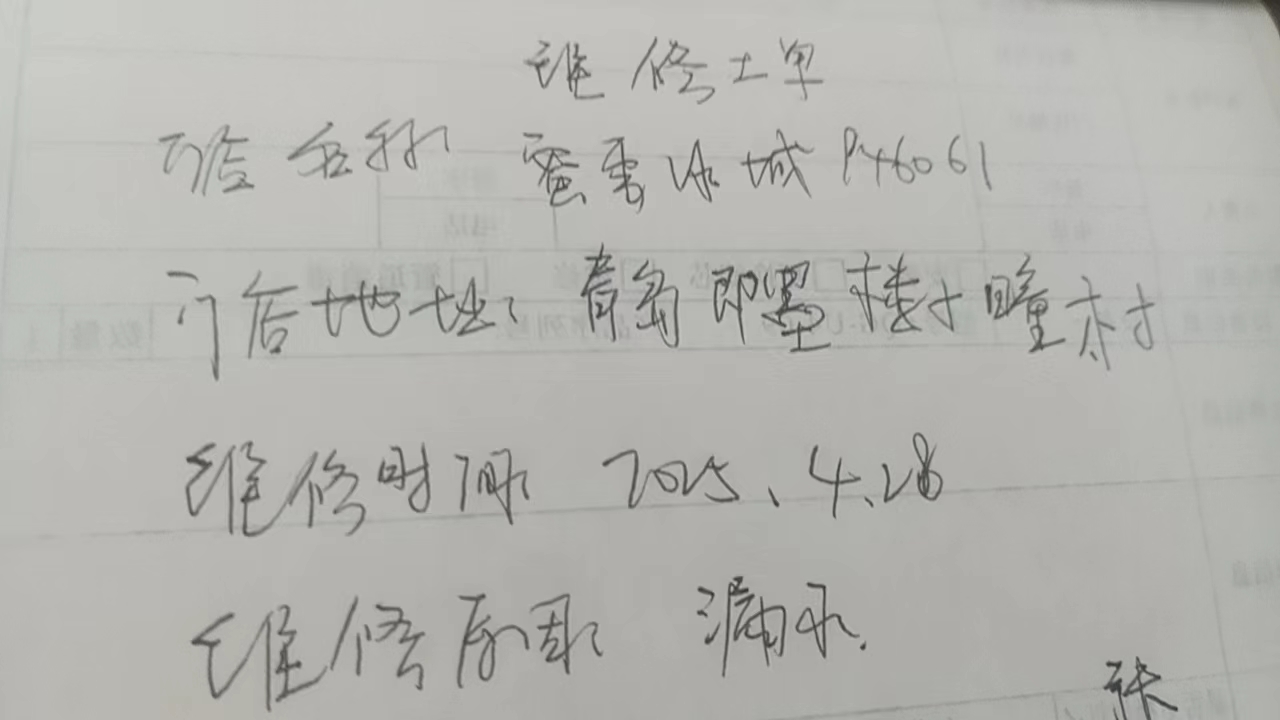 维修工单
门店名称 蜜雪冰城PY6061
门店地址：青岛即墨楼子疃村
维修时间 2025、4.28
维修原因 漏水.